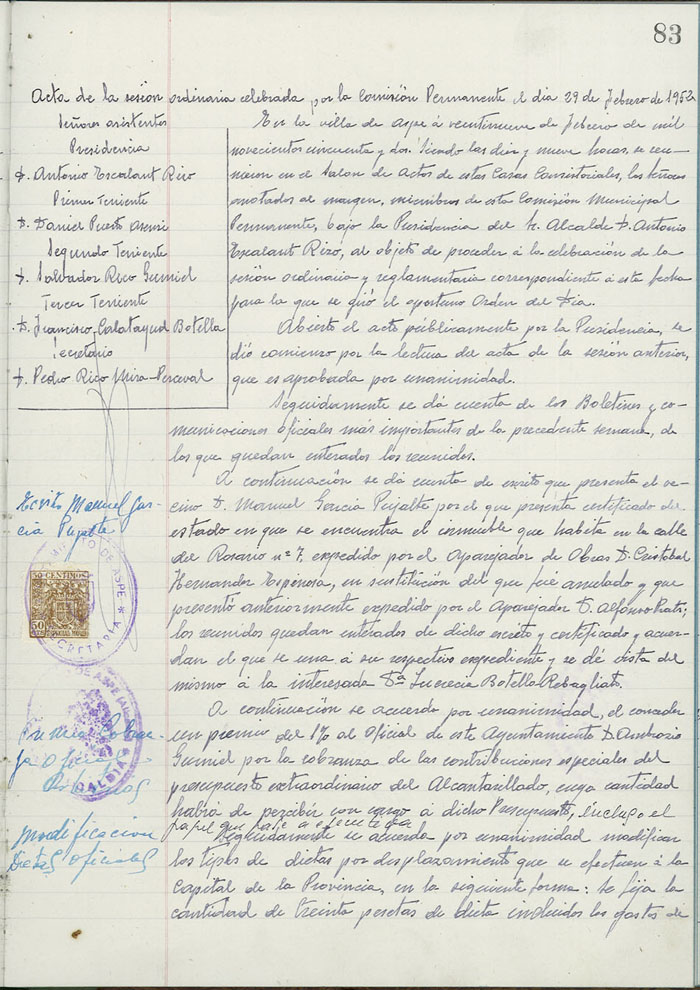 83
Acta de la sesión ordinaria celebrada por la Comisión Permanente el dia 29 de Febrero de 1952
Señores asistentes
Presidencia
D. Antonio Escalant Rizo
Primer Teniente
D. Daniel Puerto Asensi
Segundo Teniente
D. Salvador Rico Gumiel
Tercer Teniente
D. Francisco Calatayud Botella
Secretario
D. Pedro Rico Mira-Perceval
En la villa de Aspe á veintinueve de Febrero de mil
novecientos cincuenta y dos. Siendo las diez y nueve horas, se reu-
nieron en el Salon de Actos de estas Casas Consistoriales, los señores
anotados al margen, miembros de esta Comisión Municipal
Permanente, bajo la Presidencia del Sr. Alcalde D. Antonio
Escalant Rizo, al objeto de proceder á la celebración de la
sesión ordinaria y reglamentaria correspondiente á esta fecha
para la que se giró el oportuno Orden del Dia.
Abierto el acto públicamente por la Presidencia, se
dió comienzo por la lectura del acta de la sesión anterior,
que es aprobada por unanimidad.
Seguidamente se dá cuenta de los Boletines y co-
municaciones oficiales más importantes de la precedente semana, de
los que quedan enterados los reunidos.
Escrito Manuel Gar-
cia Pujalte
A continuación se dá cuenta de escrito que presenta el ve-
cino D. Manuel Garcia Pujalte por el que presenta certificado del
estado en que se encuentra el inmueble que habita en la calle
del Rosario nº 7, expedido por el Aparejador de Obras D. Cristobal
Hernandez Espinosa, en sustitución del que fué anulado y que
presentó anteriormente expedido por el Aparejador D. Alfonso Prats;
los reunidos quedan enterados de dicho escrito y certificado y acuer-
dan el que se una á su respectivo expediente y se dé vista del
mismo á la interesada Dª Lucrecia Botella Rebagliato.
50 CENTIMOS
50
DE ASPE
SECRETARIA
ALCALDIA
Premio Cobran-
za Oficial
A continuación se acuerda por unanimidad, el conceder
un premio del 1% al Oficial de este Ayuntamiento D. Ambrosio
Gumiel por la cobranza de las contribuciones especiales del
presupuesto extraordinario del Alcantarillado, cuya cantidad
habrá de percibir con cargo á dicho Presupuesto, incluso el
papel que pase a ejecutiva
Modificacion
Dietas oficiales
Seguidamente se acuerda por unanimidad modificar
los tipos de dietas por desplazamiento que se efectuen á la
Capital de la Provincia, en la siguiente forma: se fija la
cantidad de treinta pesetas de dieta incluidos los gastos de